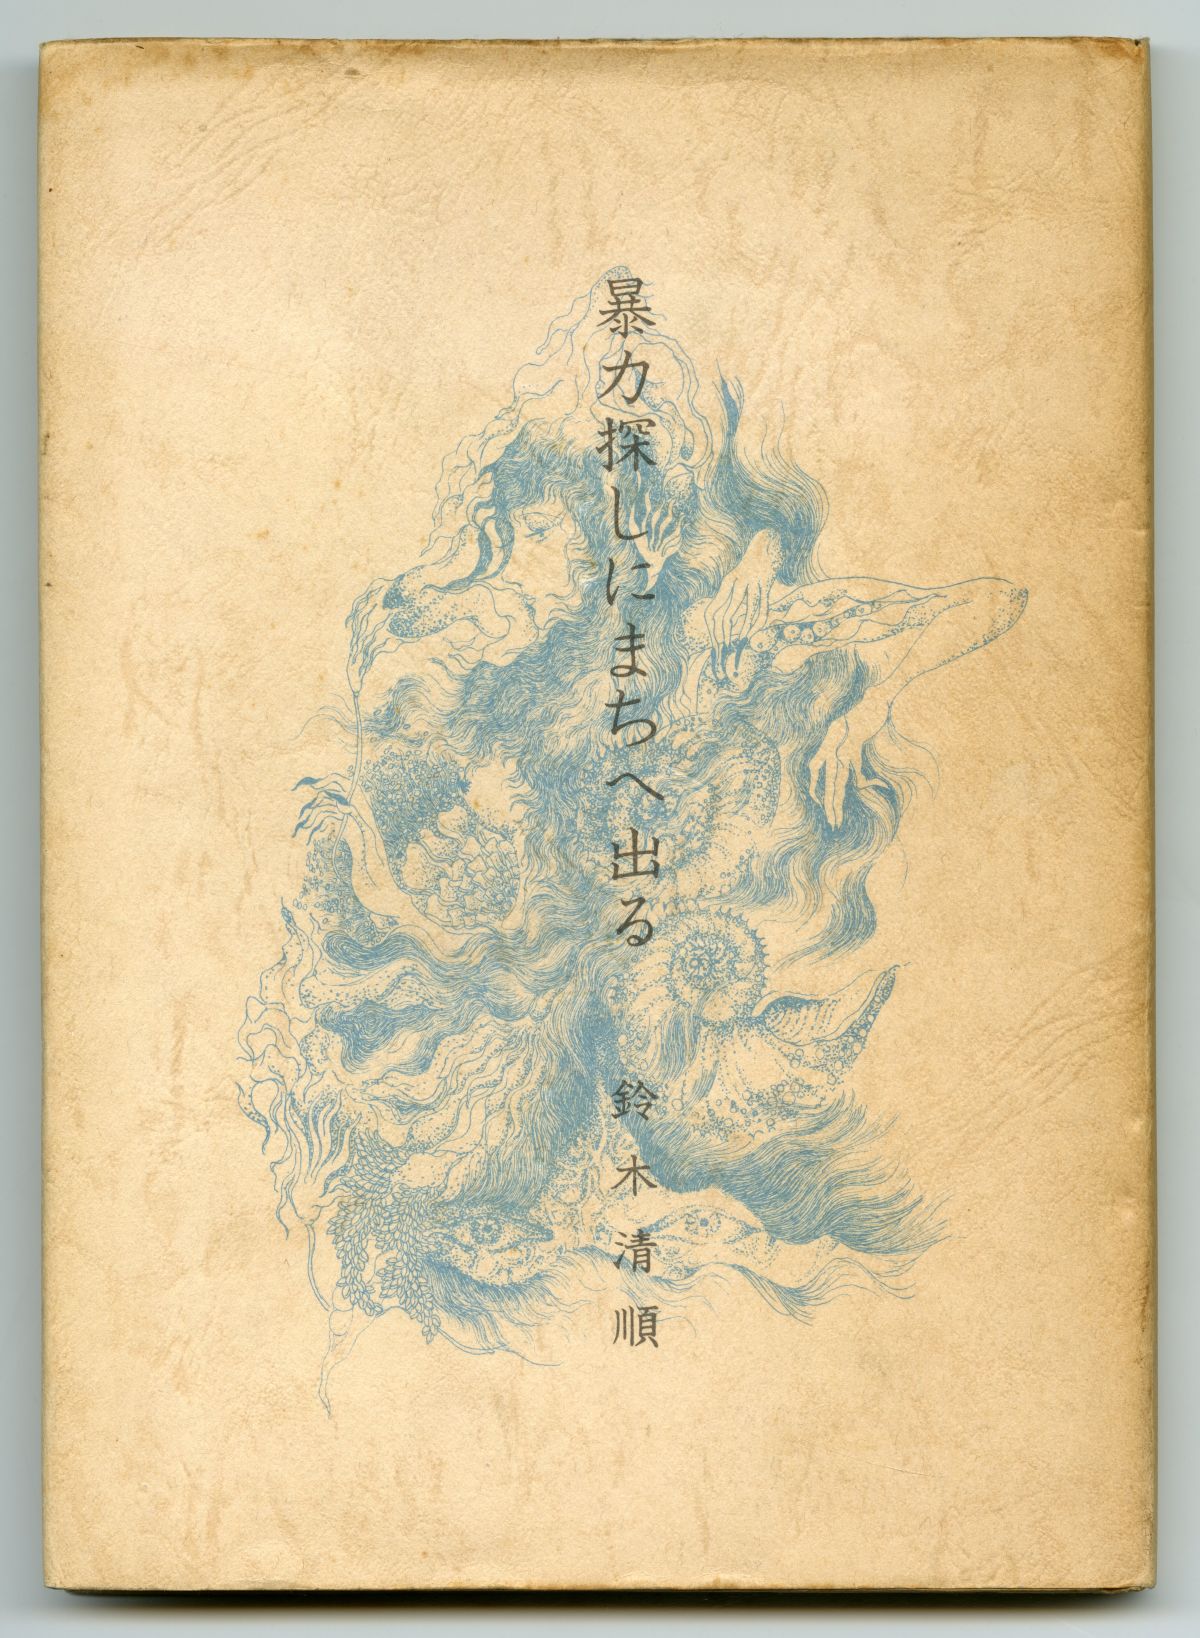 暴力探しにまちへ出る
鈴木清順